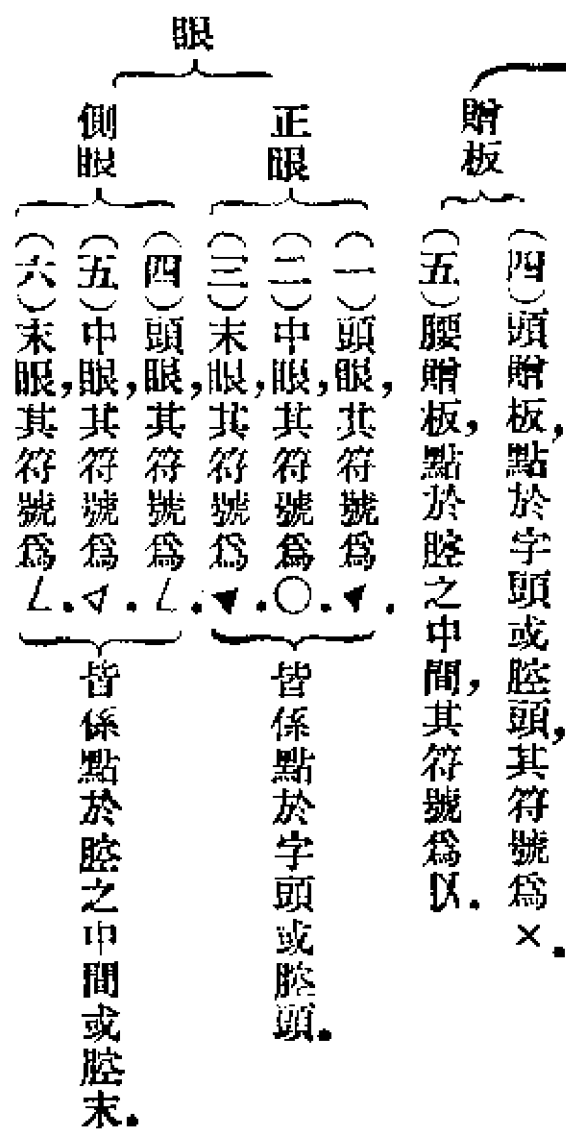 贈板
(四)頭贈板,點於字頭或腔頭,其符號爲×.
(五)腰贈板,點於腔之中間,其符號爲.
眼
正眼
(一)頭眼,其符號爲▼.
(二)中眼,其符號爲○.
(三)末眼,其符號爲▼.
皆係點於字頭或腔頭.
側眼
(四)頭眼,其符號爲㇄.
(五)中眼,其符號爲◁.
(六)末眼,其符號爲㇄.
皆係點於腔之中間或腔末.